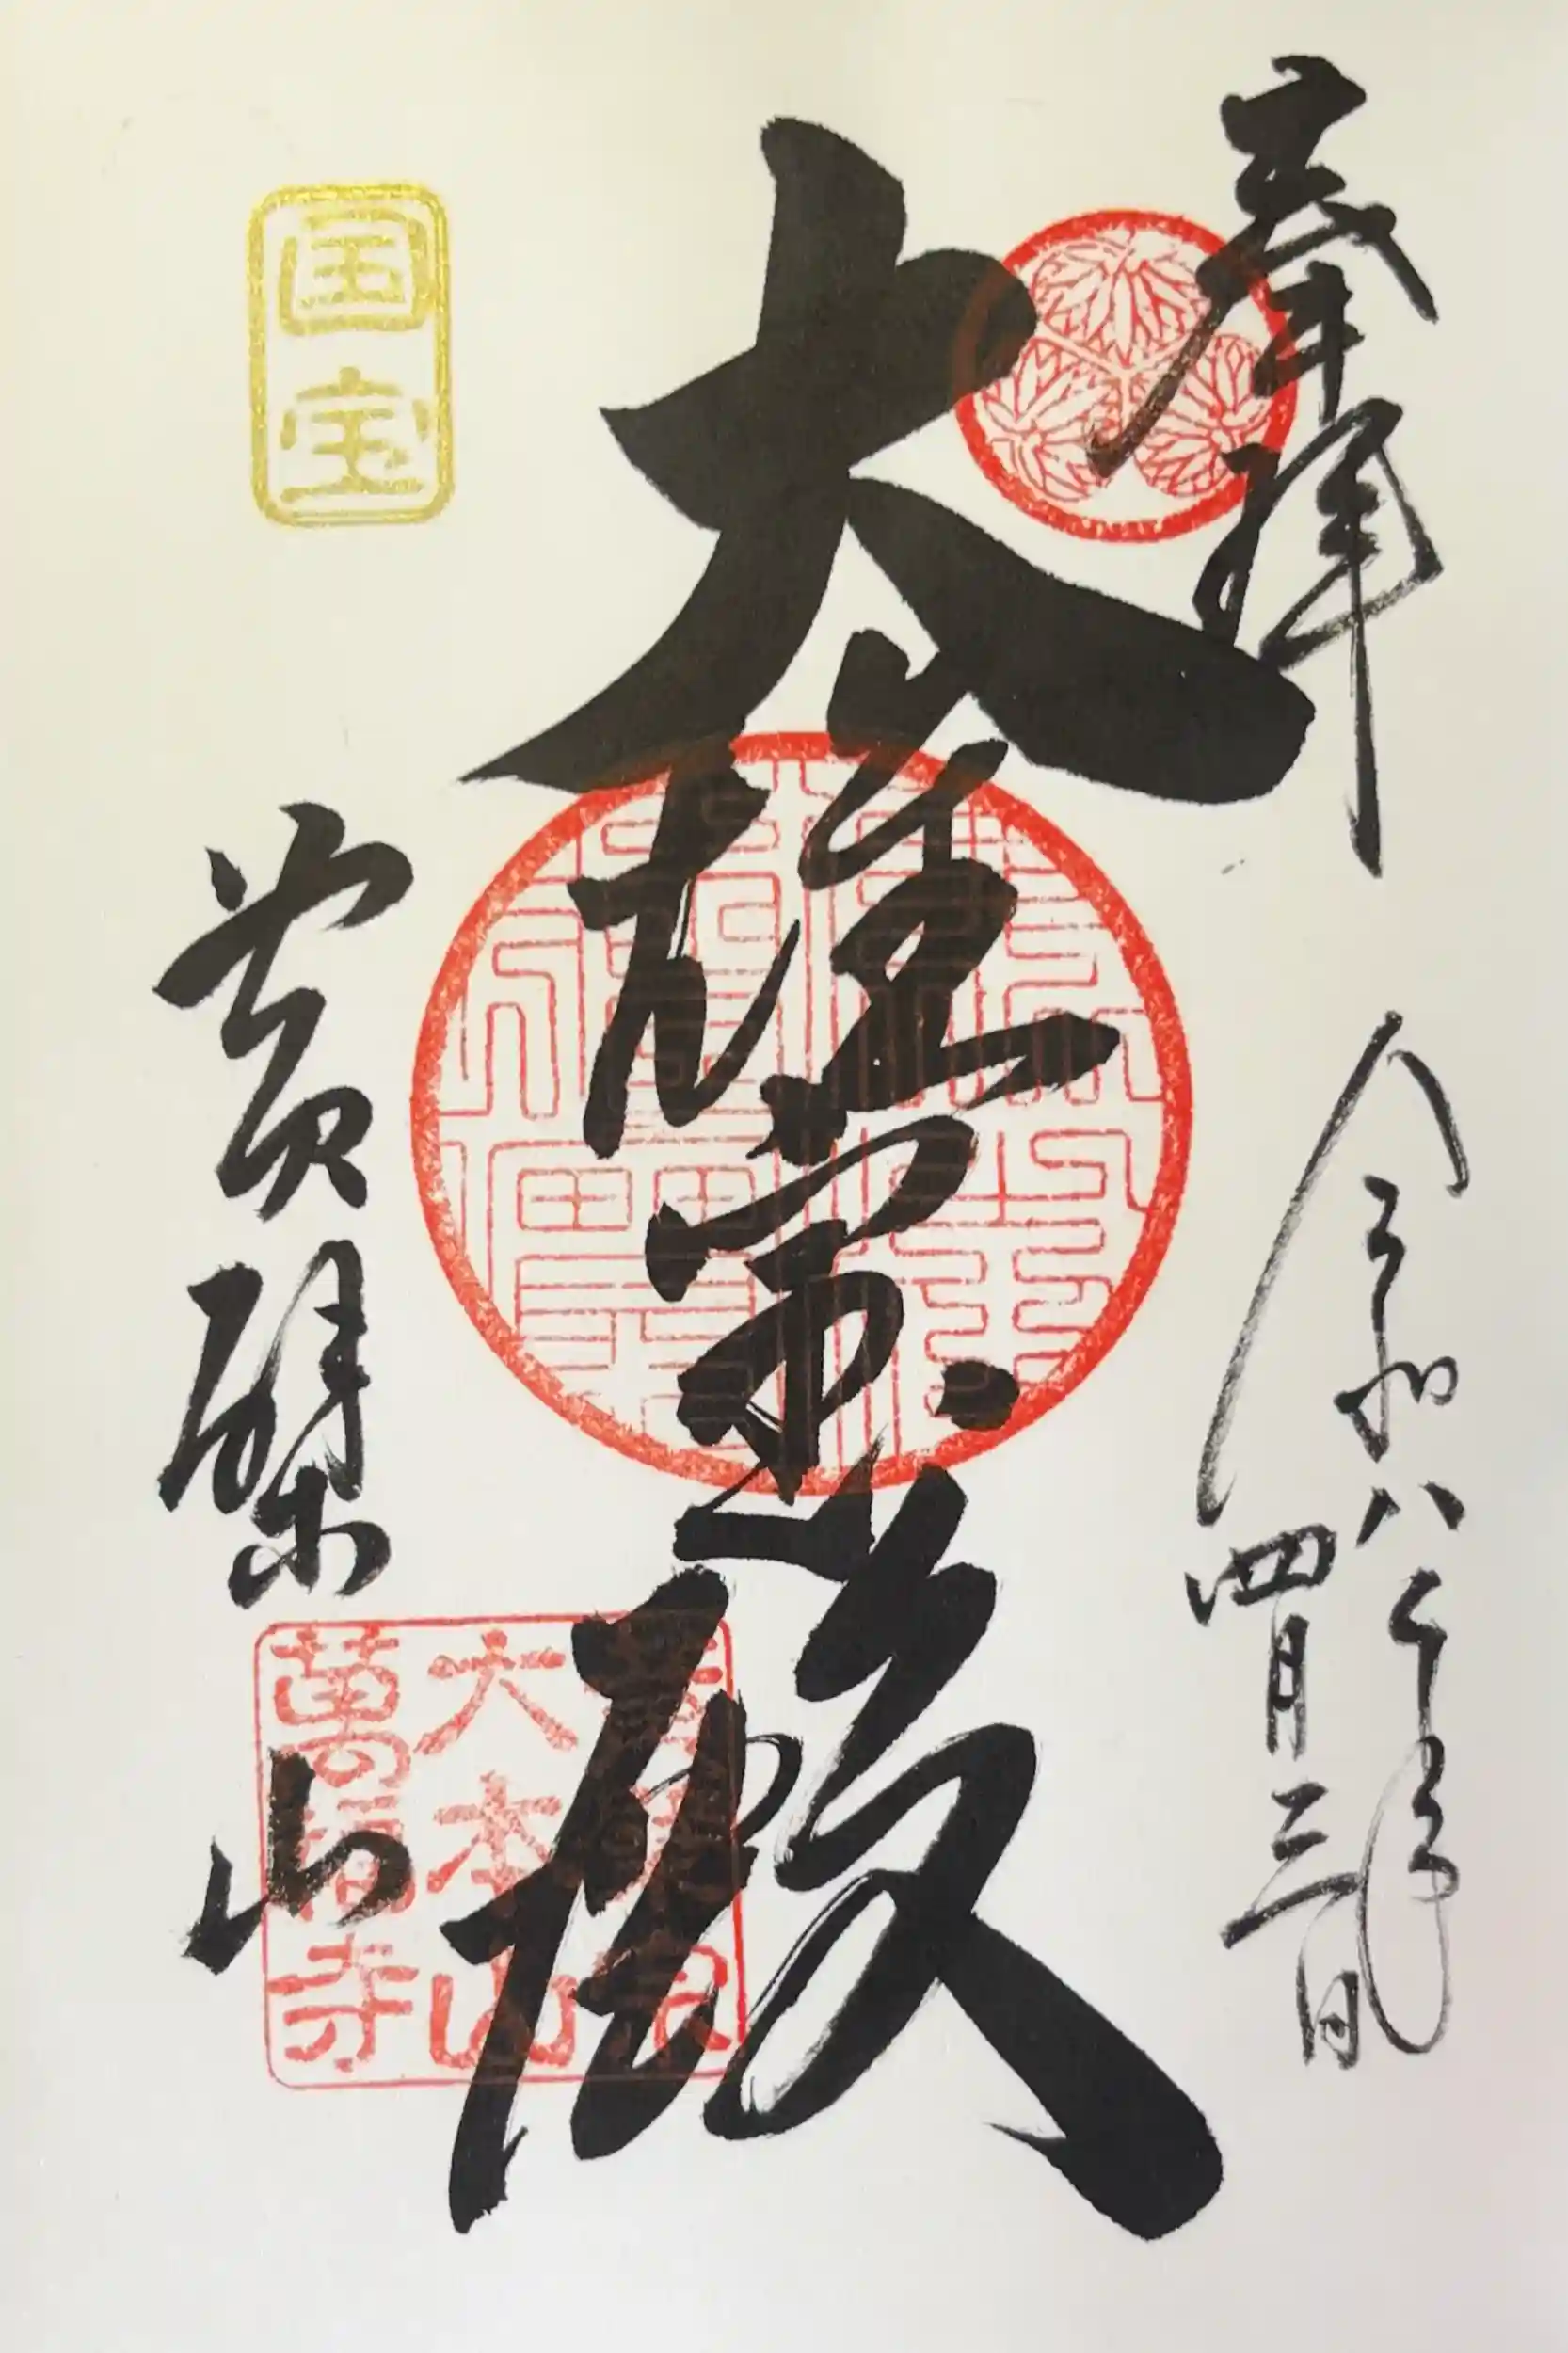 奉拝
令和八年
四月三日
大雄寶殿
国宝
黄檗山
黄檗宗
大本山
萬福寺